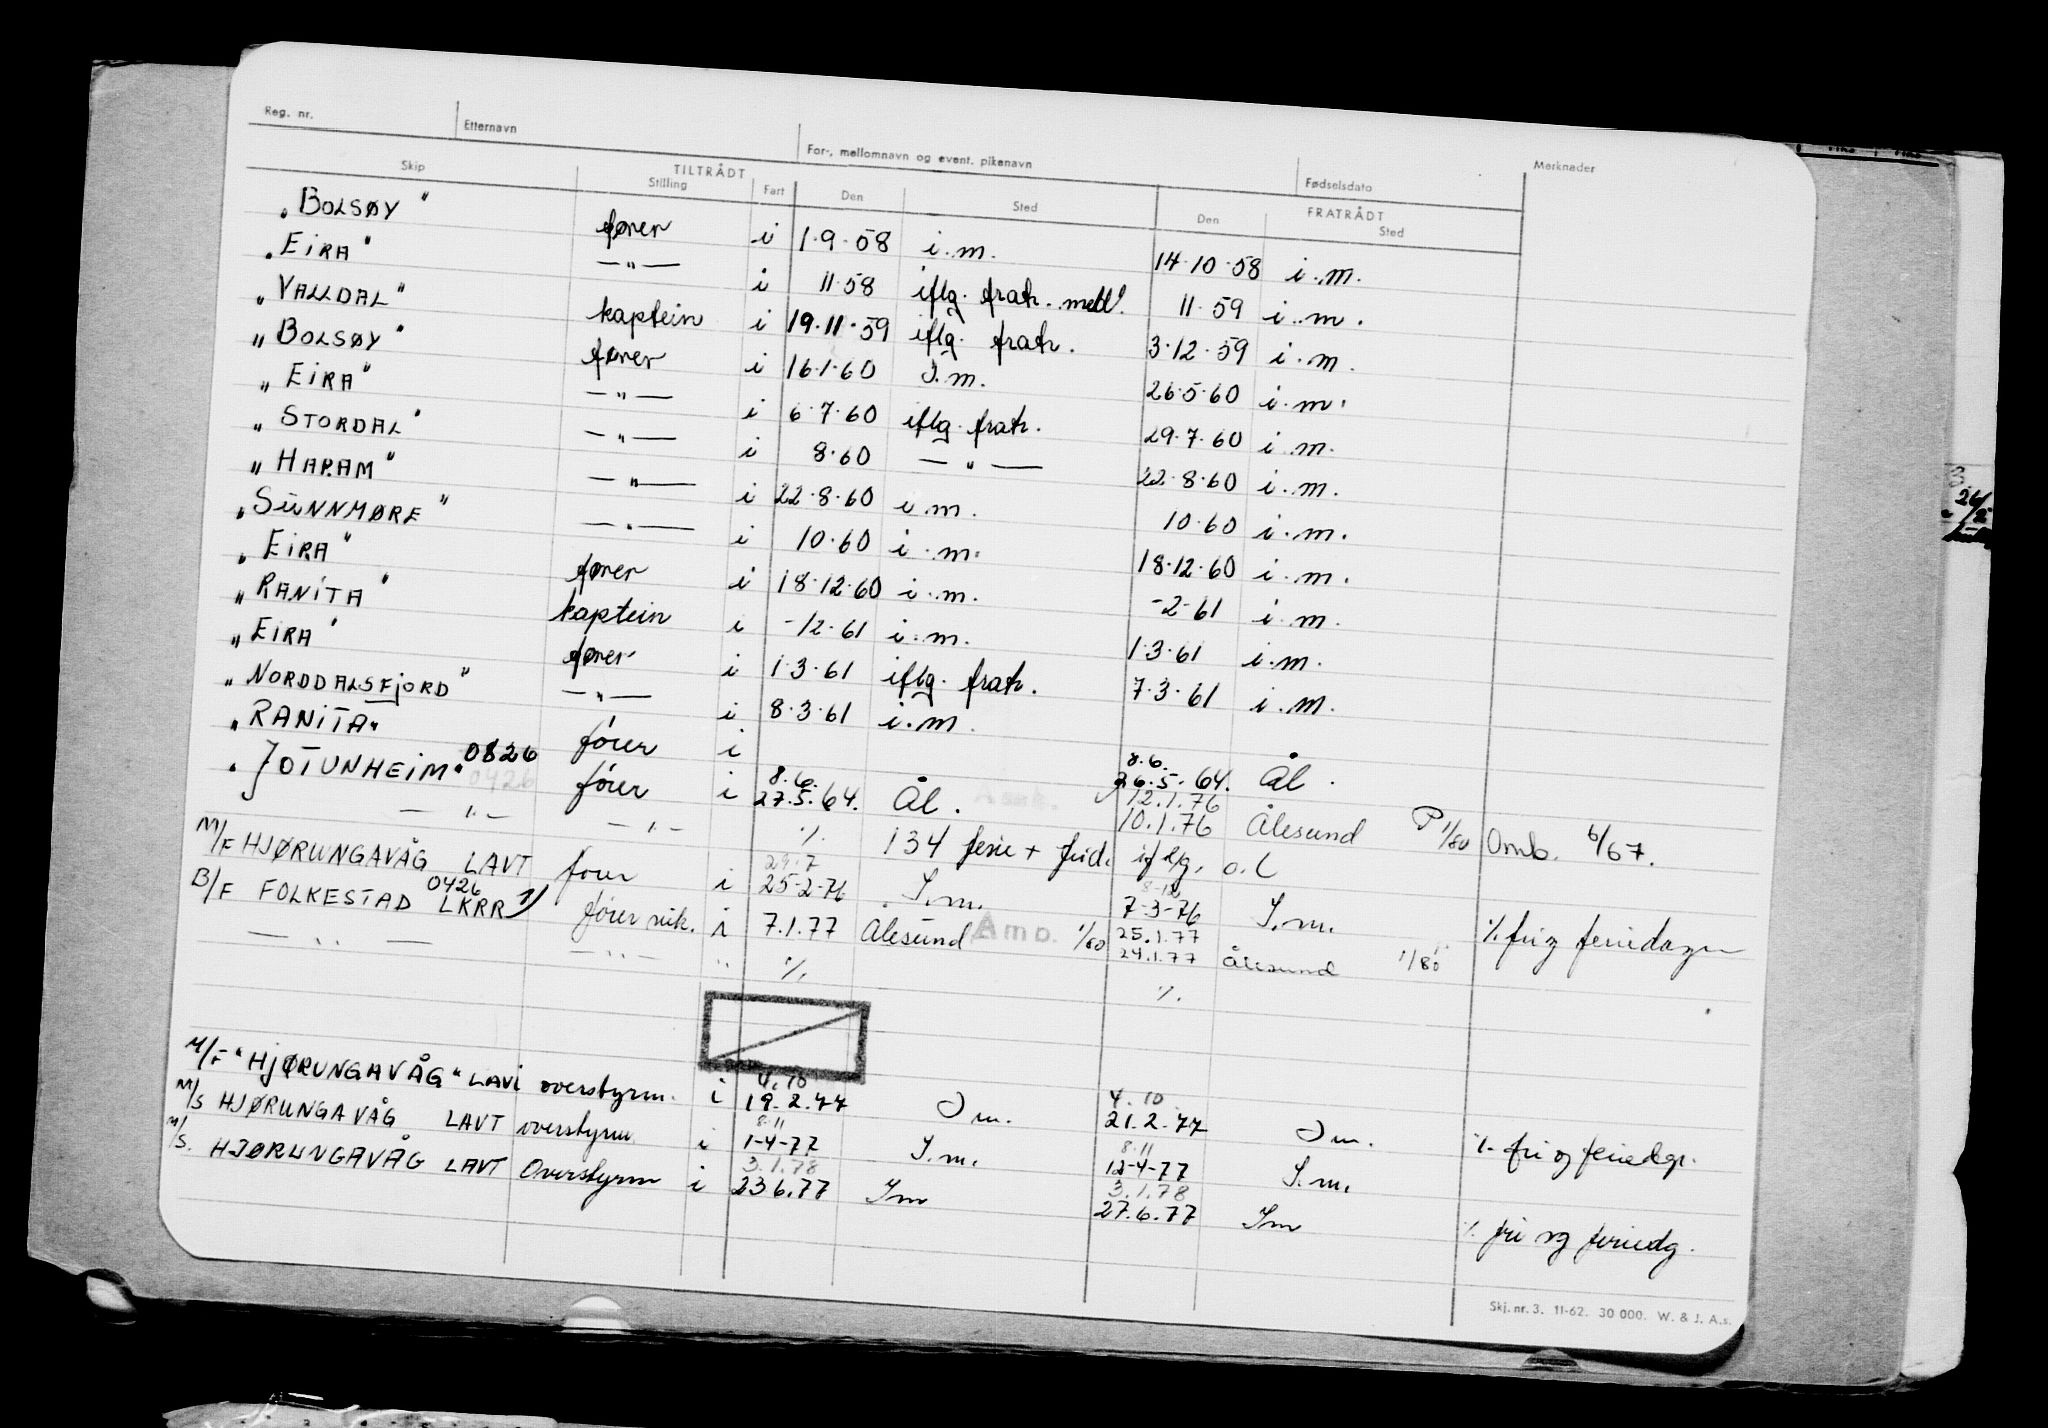 Reg. nr. Etternavn For-, mellomnavn og event. pikenavn Fødselsdato Merknader
Skip TILTRÅDT FRATRÅDT
Stilling Fart Den Sted Den Sted
"BOLSØY" fører i 1·9·58 i.m. 14·10·58 i.m.
"EIRA" —"— i 11·58 iflg. fratr. meld. 11·59 i.m.
"VALLDAL" kaptein i 19·11·59 iflg. fratr. 3·12·59 i.m.
"BOLSØY" fører i 16·1·60 I.m. 26·5·60 i.m.
"EIRA" —"— i 6·7·60 iflg. fratr. 29·7·60 i.m.
"STORDAL" —"— i 8·60 —"— 22·8·60 i.m.
"HARAM" —"— i 22·8·60 i.m. 10·60 i.m.
"SUNNMØRE" —"— i 10·60 i.m. 18·12·60 i.m.
"EIRA" fører i 18·12·60 i.m. -2-61 i.m.
"RANITA" kaptein i -12·61 i.m. 1·3·61 i.m.
"EIRA" fører i 1·3·61 iflg. fratr. 7·3·61 i.m.
"NORDDALSFJORD" —"— i 8·3·61 i.m.
"RANITA" fører i 8.6. 26.5.64. Ål.
"JOTUNHEIM" 0826 0426 fører i 8.6. 27.5.64. Ål. 12.1.76 10.1.76 Ålesund P 1/80 Omb. 6/67.
—"— —"— %. 134 ferie + frid. iflg. o.l
M/F HJØRUNGAVÅG LAVT fører i 29.7 25-2-76 I.m. 8-12 7-3-76 I.m. %. fri og feriedager
B/F FOLKESTAD 0426 LKRR 1) fører vik. i 7.1.77 Ålesund Amb. 1/80 25.1.77 24.1.77 Ålesund 1/80
—"— —"— " %. %.
M/F "HJØRUNGAVÅG" LAVT overstyrm. i 4.10 19.2.77 I m. 4.10 21.2.77 I m. %. fri og feriedgr.
M/S HJØRUNGAVÅG LAVT overstyrm i 8.11 1-4-77 I.m. 8.11 12-4-77 I.m.
M/S. HJØRUNGAVÅG LAVT Overstyrm i 3.1.78 23 6.77 Im 3.1.78 27.6.77 Im %. fri og feriedg.
Skj. nr. 3. 11-62. 30 000. W. & J. A.s.